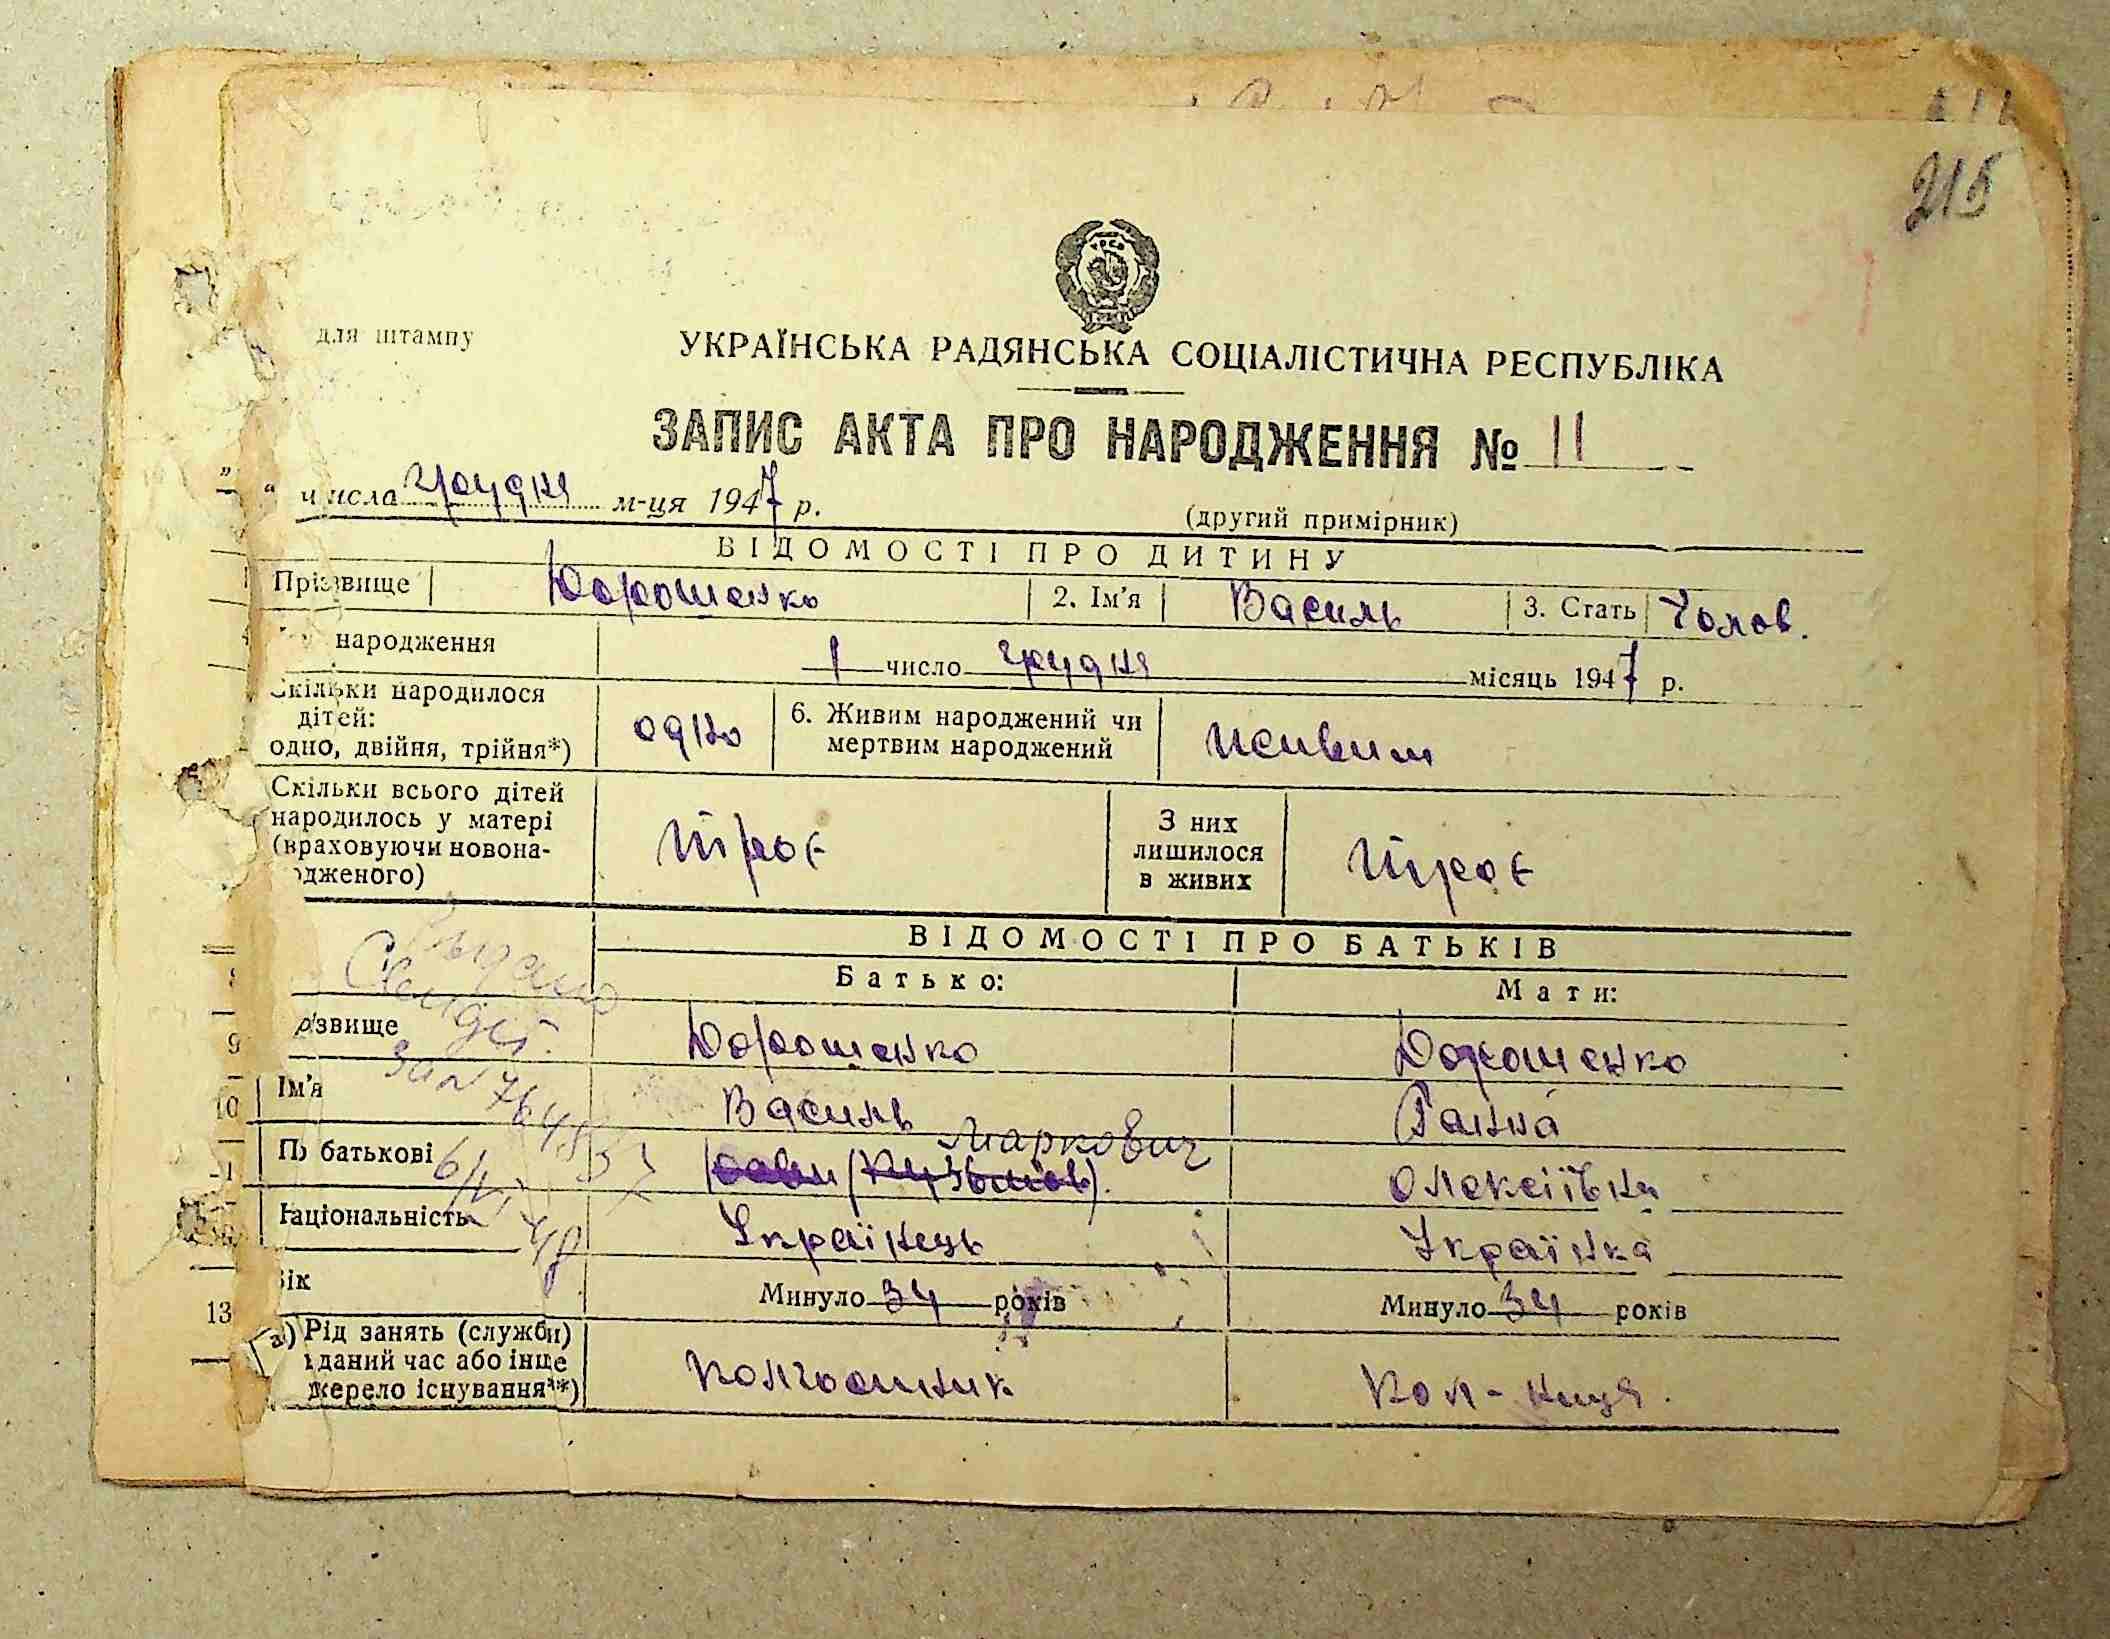 215
для штампу
УКРАЇНСЬКА РАДЯНСЬКА СОЦІАЛІСТИЧНА РЕСПУБЛІКА
ЗАПИС АКТА ПРО НАРОДЖЕННЯ № 11
" " числа грудня м-ця 1947 р.
(другий примірник)
ВІДОМОСТІ ПРО ДИТИНУ
Прізвище Дорошенко 2. Ім'я Василь 3. Стать Чолов.
народження 1 число грудня місяць 1947 р.
Скільки народилося
дітей:
одно, двійня, трійня*)
одно
6. Живим народжений чи
мертвим народжений
живим
Скільки всього дітей
народилось у матері
(враховуючи новона-
одженого)
троє
З них
лишилося
в живих
троє
ВІДОМОСТІ ПРО БАТЬКІВ
Батько: Мати:
9 різвище Дорошенко Дорошенко
10 Ім'я Василь Ганна
По батькові Маркович Олексіївна
Національність Українець Українка
Вік Минуло 34 років Минуло 34 років
13 а) Рід занять (служби)
даний час або інше
жерело існування**)
колгоспник кол-ниця.
Выдано
Свидет.
за N
48